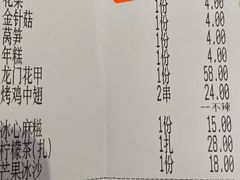 花菜 1份 4.00
金针菇 1份 4.00
莴笋 1份 4.00
年糕 1份 4.00
龙门花甲 1份 58.00
烤鸡中翅 2串 24.00
--不辣
冰心麻糍 1份 15.00
柠檬茶(扎) 1扎 28.00
芒果冰沙 1份 18.00